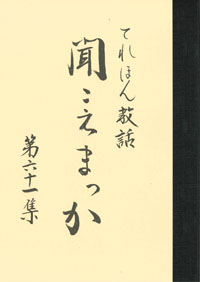 てれほん教話
聞こえまっか
第六十一集